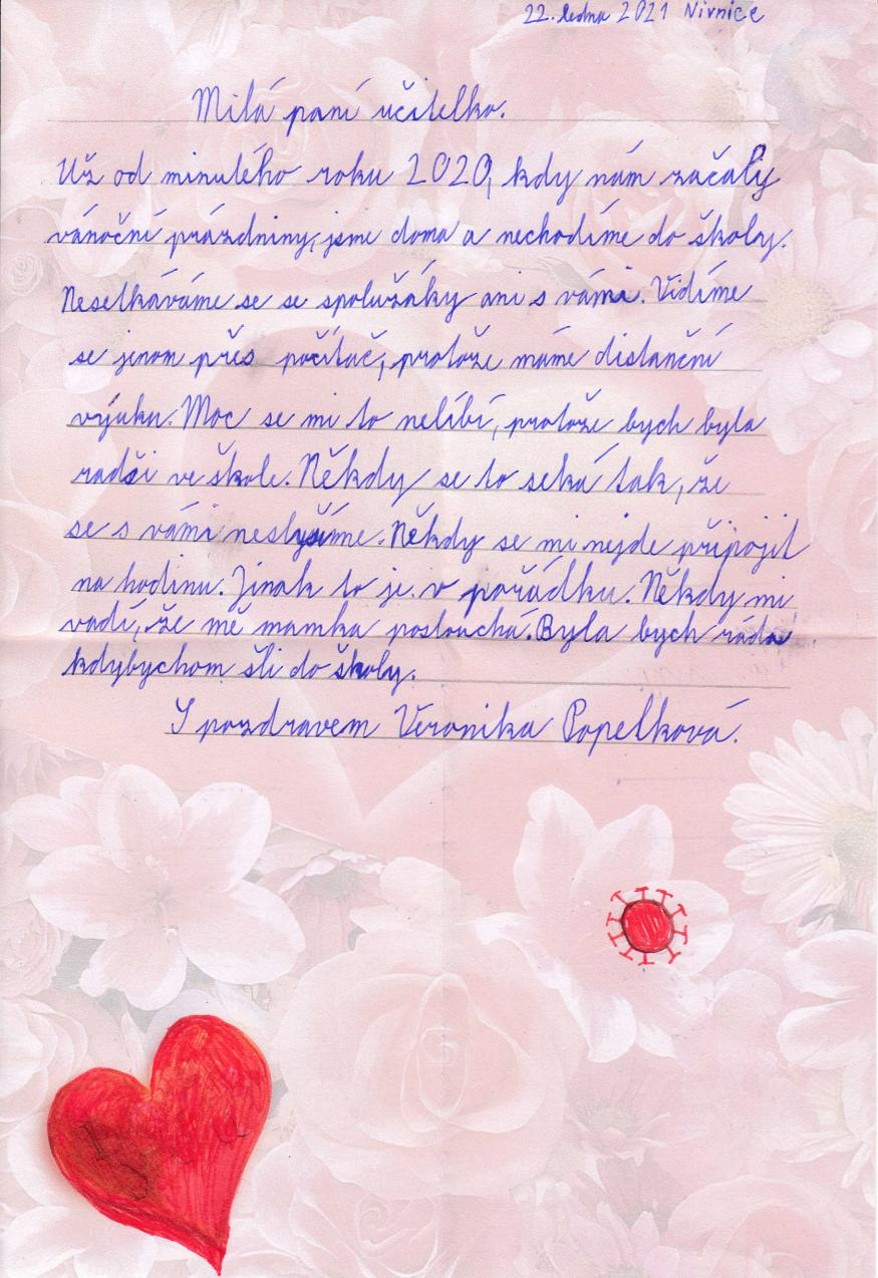 22. ledna 2021 Nivnice
Milá paní učitelko.
Už od minulého roku 2020, kdy nám začaly
vánoční prázdniny, jsme doma a nechodíme do školy.
Neselkáváme se se spolužáky ani s vámi. Vidíme
se jenom přes počítač, protože máme distanční
výuku. Moc se mi to nelíbí, protože bych byla
radši ve škole. Někdy se to seká tak, že
se s vámi neslyšíme. Někdy se mi nejde připojit
na hodinu. Jinak to je v pořádku. Někdy mi
vadí, že mě mamka poslouchá. Byla bych ráda
kdybychom šli do školy.
S pozdravem Veronika Popelková.